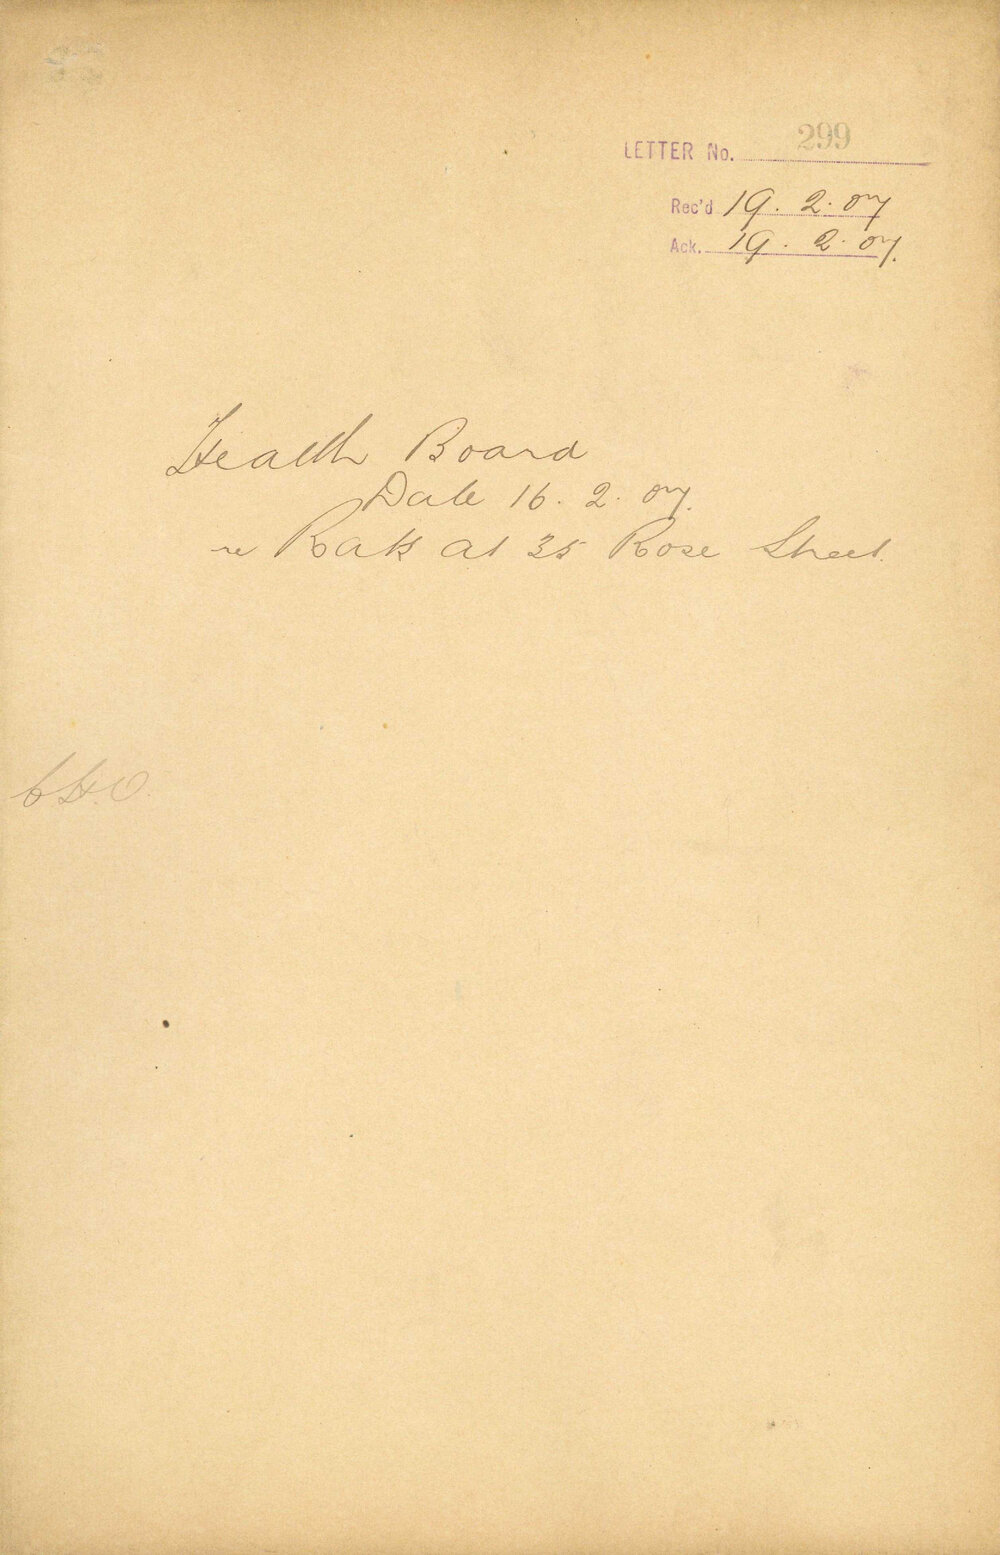 LETTER No. 299
Rec'd 19. 2. 07
Ack. 19. 2. 07.
Health Board
Date 16. 2. 07.
re Rats at 35 Rose Street.
C.H.O.